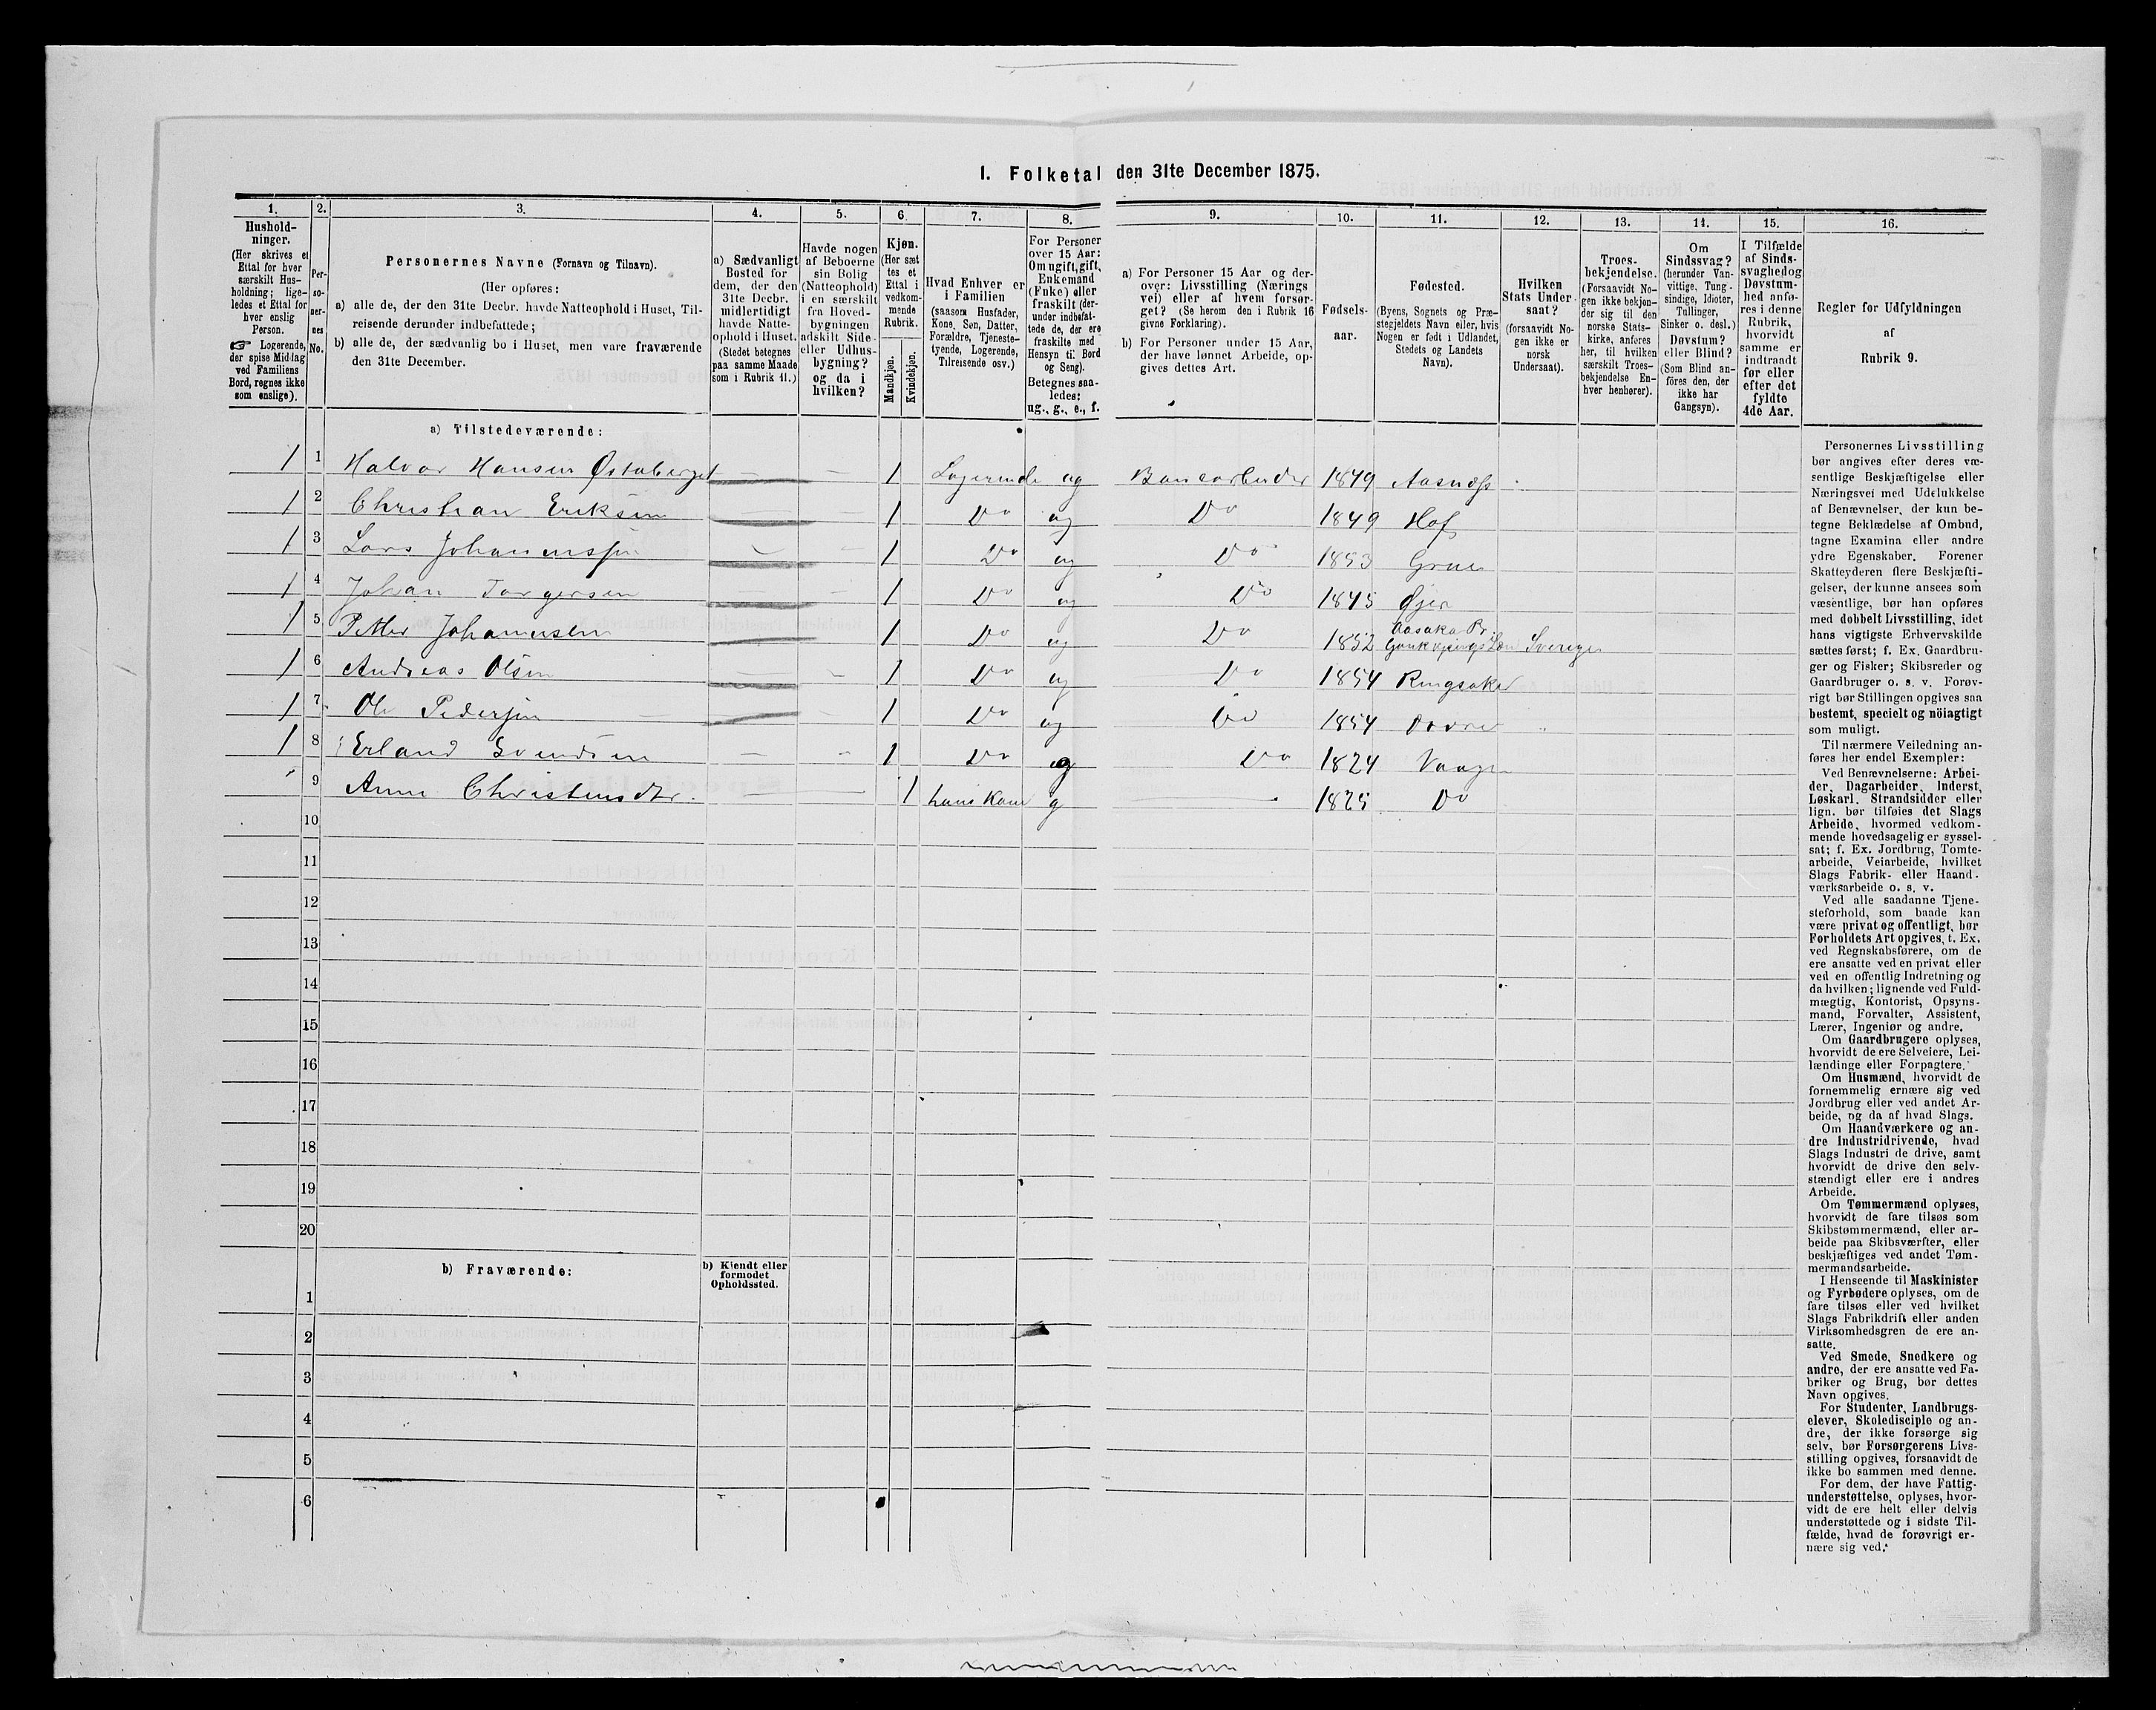 I. Folketal den 31te December 1875.
1. 2. 3. 4. 5. 6. 7. 8. 9. 10. 11. 12. 13. 14. 15. 16.
Hushold-
ninger.
(Her skrives et
Ettal for hver
særskilt Hus-
holdning; lige-
ledes et Ettal for
hver enslig
Person.
☞ Logerende,
der spise Middag
ved Familiens
Bord, regnes ikke
som enslige).
Per-
so-
ner-
nes
No.
Personernes Navne (Fornavn og Tilnavn).
(Her opføres:
a) alle de, der den 31te Decbr. havde Natteophold i Huset, Til-
reisende derunder indbefattede;
b) alle de, der sædvanlig bo i Huset, men vare fraværende
den 31te December.
a) Sædvanligt
Bosted for
dem, der den
31te Decbr.
midlertidigt
havde Natte-
ophold i Huset.
(Stedet betegnes
paa samme Maade
som i Rubrik 11.)
Havde nogen
af Beboerne
sin Bolig
(Natteophold)
i en særskilt
fra Hoved-
bygningen
adskilt Side-
eller Udhus-
bygning?
og da i
hvilken?
Kjøn.
(Her sæt
tes et
Ettal i
vedkom-
mende
Rubrik.
Mandkjøn.
Kvindekjøn.
Hvad Enhver er
i Familien
(saasom Husfader,
Kone, Søn, Datter,
Forældre, Tjeneste-
tyende, Logerende,
Tilreisende osv.)
For Personer
over 15 Aar:
Om ugift, gift,
Enkemand
(Enke) eller
fraskilt (der-
under indbefat-
tede de, der ere
fraskilte med
Hensyn til Bord
og Seng).
Betegnes saa-
ledes:
ug., g., e., f.
a) For Personer 15 Aar og der-
over: Livsstilling (Nærings
vei) eller af hvem forsør-
get? (Se herom den i Rubrik 16
givne Forklaring).
b) For Personer under 15 Aar,
der have lønnet Arbeide, op-
gives dettes Art.
Fødsels-
aar.
Fødested.
(Byens, Sognets og Præ-
stegjeldets Navn eller, hvis
Nogen er født i Udlandet,
Stedets og Landets
Navn).
Hvilken
Stats Under-
saat?
(forsaavidt No-
gen ikke er
norsk
Undersaat).
Troes-
bekjendelse.
(Forsaavidt No-
gen ikke bekjen-
der sig til den
norske Stats-
kirke, anføres
her, til hvilken
særskilt Troes-
bekjendelse En-
hver henhører).
Om
Sindssvag?
(herunder Van-
vittige, Tung-
sindige, Idioter,
Tullinger,
Sinker o. desl.)
Døvstum?
eller Blind?
(Som Blind an-
föres den, der
ikke har
Gangsyn).
I Tilfælde
af Sinds-
svaghed og
Døvstum-
hed anfø-
res i denne
Rubrik,
hvorvidt
samme er
indtraadt
før eller
efter det
fyldte
4de Aar.
Regler for Udfyldningen
af
Rubrik 9.
a) Tilstedeværende:
1 1 Halvor Hansen Østaberget — — 1 Logerende ug Banearbeider 1849 Aasnæs
1 2 Christian Eriksen 1 Do ug Do 1849 Hof
1 3 Lars Johannessen 1 Do ug Do 1853 Grue
1 4 Johan Torgersen 1 Do ug Do 1845 Øjer
1 5 Petter Johannesen 1 Do ug Do 1852 Sverige
1 6 Andreas Olsen 1 Do ug Do 1854 Ringsaker
1 7 Ole Pedersen 1 Do ug Do 1854 Dovre
1 8 Erland Svendsen — 1 Do g Do 1824 Vaage
9 Anne Christensdtr. — — 1 hans Kone g — 1825 Do
10
11
12
13
14
15
16
17
18
19
20
b) Fraværende:
b) Kjendt eller
formodet
Opholdssted.
1
2
3
4
5
6
Personernes Livsstilling
bør angives efter deres væ-
sentlige Beskjæftigelse eller
Næringsvei med Udelukkelse
af Benævnelser, der kun be-
tegne Beklædelse af Ombud,
tagne Examina eller andre
ydre Egenskaber. Forener
Skatteyderen flere Beskjæfti-
gelser, der kunne ansees som
væsentlige, bør han opføres
med dobbelt Livsstilling, idet
hans vigtigste Erhvervskilde
sættes først; f. Ex. Gaardbru-
ger og Fisker; Skibsreder og
Gaardbruger o. s. v. Forøv-
rigt bør Stillingen opgives saa
bestemt, specielt og nöiagtigt
som muligt.
Til nærmere Veiledning an-
føres her endel Exempler:
Ved Benævnelserne: Arbei-
der, Dagarbeider, Inderst,
Løskarl, Strandsidder eller
lign. bør tilføies det Slags
Arbeide, hvormed vedkom-
mende hovedsagelig er syssel-
sat; f. Ex. Jordbrug, Tomte-
arbeide, Veiarbeide, hvilket
Slags Fabrik- eller Haand-
værksarbeide o. s. v.
Ved alle saadanne Tjene-
steforhold, som baade kan
være privat og offentligt, bør
Forholdets Art opgives, t. Ex.
ved Regnskabsførere, om de
ere ansatte ved en privat eller
ved en offentlig Indretning og
da hvilken; lignende ved Fuld-
mægtig, Kontorist, Opsyns-
mand, Forvalter, Assistent,
Lærer, Ingeniør og andre.
Om Gaardbrugere oplyses,
hvorvidt de ere Selveiere, Lei-
lændinge eller Forpagtere.
Om Husmænd, hvorvidt de
fornemmelig ernære sig ved
Jordbrug eller ved andet Ar-
beide, og da af hvad Slags.
Om Haandværkere og an-
dre Industridrivende, hvad
Slags Industri de drive, samt
hvorvidt de drive den selv-
stændigt eller ere i andres
Arbeide.
Om Tømmermænd oplyses,
hvorvidt de fare tilsøs som
Skibstømmermænd, eller ar-
beide paa Skibsværfter, eller
beskjæftiges ved andet Tøm-
mermandsarbeide.
I Henseende til Maskinister
og Fyrbødere oplyses, om de
fare tilsøs eller ved hvilket
Slags Fabrikdrift eller anden
Virksomhedsgren de ere an-
satte.
Ved Smede, Snedkere og
andre, der ere ansatte ved Fa-
briker og Brug, bør dettes
Navn opgives.
For Studenter, Landbrugs-
elever, Skoledisciple og an-
dre, der ikke forsørge sig
selv, bør Forsørgerens Livs-
stilling opgives, forsaavidt de
ikke bo sammen med denne.
For dem, der have Fattig-
understøttelse, oplyses, hvor-
vidt de ere helt eller delvis
understøttede og i sidste Til-
fælde, hvad de forøvrigt er-
nære sig ved.